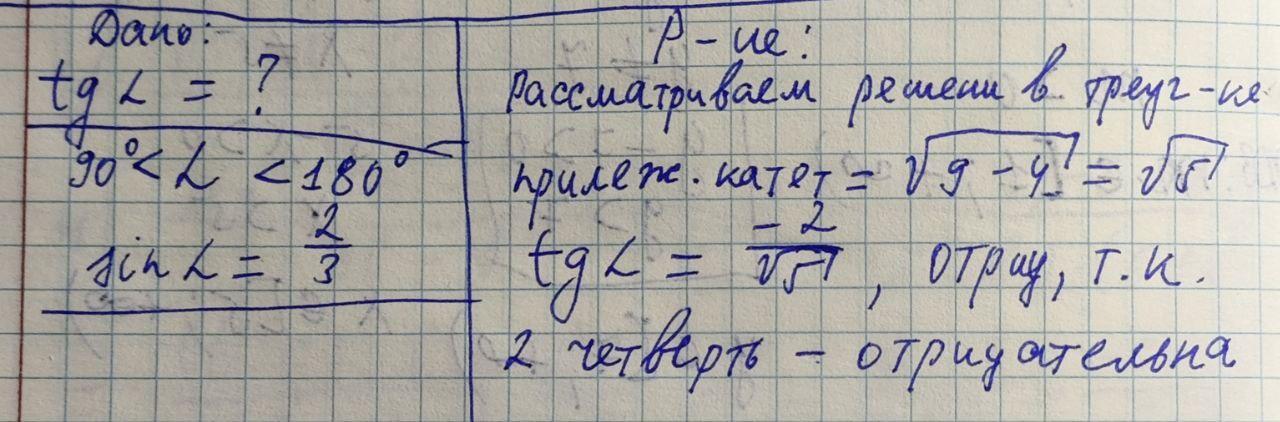 Дано:
tg α = ?
90° < α < 180°
sin α = 2/3
Р-ие:
Рассматриваем решени в треуг-ке
прилеж. катет = √9 - 4 = √5
tg α = -2/√5, отриц, т.к.
2 четверть - отрицательна